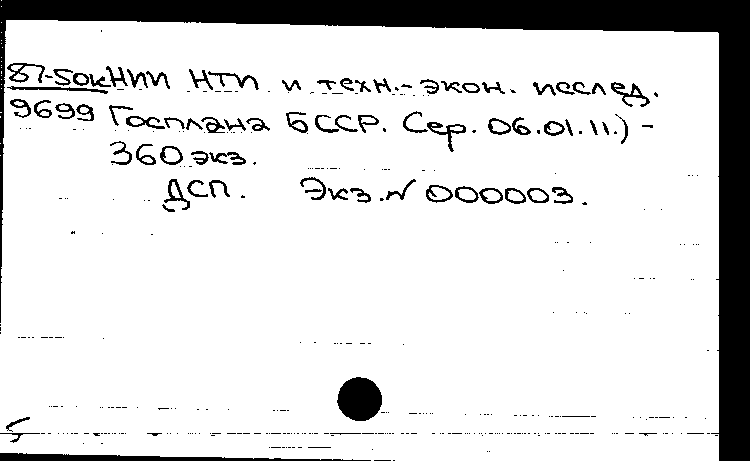 87-50к НИИ НТИ и техн.-экон. исслед.
9699 Госплана БССР. Сер. 06.01.11.) -
360 экз.
ДСП. Экз. N 000003.
5